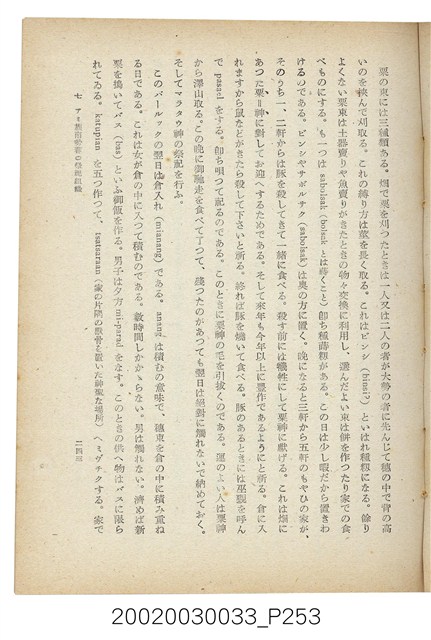 粟の束には三種類ある。畑で粟を刈つたときは一人又は二人の者が大勢の者に先んじて穗の中で背の高
いのを挾んで刈取る。これの縛り方は莖を長く取る。これはピンシ といはれ種籾になる。餘り
よくない粟束は土器賣りや魚賣りがきたときの物々交換に利用し、選んだよい束は餅を作つたり家での食
べものにする。も一つは sabolsak (bolsak とは蒔くこと) 卽ち種蒔籾がある。この日は少し暇だから置きわ
けるのである。ピンシやサボルサク (sabolsak) は奥の方に置く、晩になると三軒から五軒のもやひの家が、
そのうち一、二軒からは豚を殺してきて一緖に食べる。殺す前には犠牲にして粟神に獻げる。これは畑に
あつた粟=神に對してお迎へするためである。そして來年も今年以上に豐作であるようにと祈る。倉に入
れますから鼠などがきたら殺して下さいと祈る。終れば豚を燒いて食べる。豚のあるときには巫覡を呼ん
で pasael をする。卽ち唄つて祀るのである。このときに粟神の毛を引拔くのである。運のよい人は粟神
から澤山取る。この晩に御馳走を食べて了つて、殘つたのがあつても翌日は絕對に觸れないで納めておく。
そしてマラタウ神の祭祀を行ふ。
このパールックの翌日は倉入れ (mianang) である。anang は積むの意味で、穗束を倉の中に積み重ね
る日である。これは女が倉の中に入つて積むのである。數時間しかかゝらない。男は觸れない。濟めば新
粟を搗いてバス (bas) といふ御飯を作る。男子は夕方 mi-parad をなす。このときの供へ物はバスに限ら
れてゐる。katupian を五つ作つて、tsatarran (家の片隅の農具を置いた神聖な場所) へミヴチクする。家で
七 アミ族南勢蕃の祭祀組織
二四
20020030033_P253